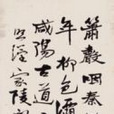 簫聲咽秦
年柳色灞
咸陽古道
照漢家陵